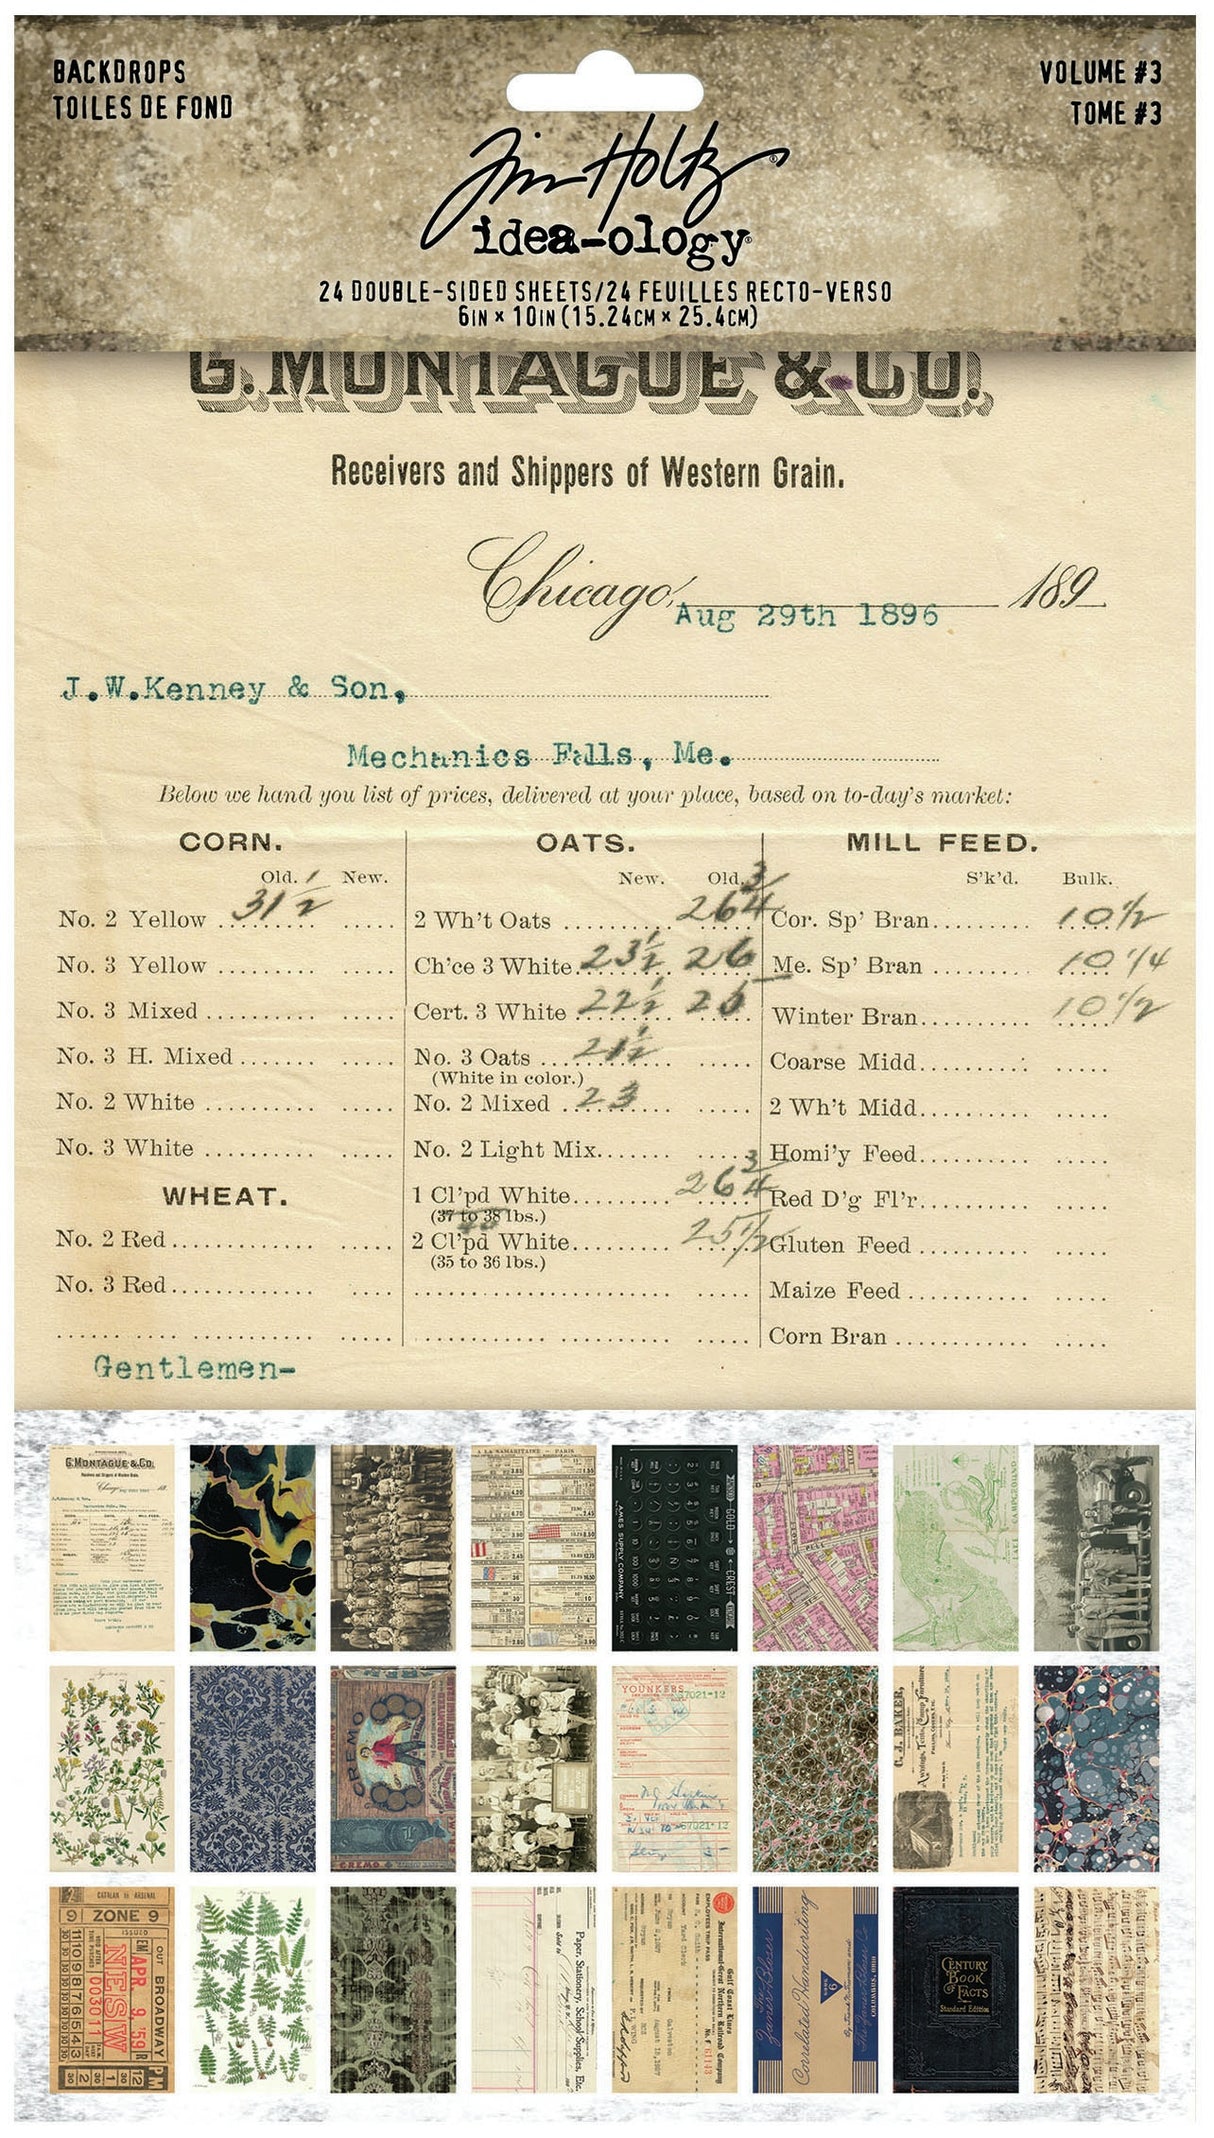 BACKDROPS
TOILES DE FOND
VOLUME #3
TOME #3
Tim Holtz ®
idea-ology®
24 DOUBLE-SIDED SHEETS/24 FEUILLES RECTO-VERSO
6IN × 10IN (15.24CM × 25.4CM)
G. MONTAGUE & CO.
Receivers and Shippers of Western Grain.
Chicago, Aug 29th 1896 189
J.W.Kenney & Son,
Mechanics Falls, Me.
Below we hand you list of prices, delivered at your place, based on to-day's market:
CORN.
Old. New.
No. 2 Yellow 31 1/2
No. 3 Yellow
No. 3 Mixed
No. 3 H. Mixed
No. 2 White
No. 3 White
WHEAT.
No. 2 Red
No. 3 Red
OATS.
New. Old.
2 Wh't Oats 26 3/4
Ch'ce 3 White 23 1/2 26
Cert. 3 White 22 1/2 25
No. 3 Oats 21 1/2
(White in color.)
No. 2 Mixed 23
No. 2 Light Mix.
1 Cl'pd White 26 3/4
(37 to 38 lbs.)
2 Cl'pd White 25 1/2
(35 to 36 lbs.)
MILL FEED.
S'k'd. Bulk.
Cor. Sp' Bran 10 1/2
Me. Sp' Bran 10 1/4
Winter Bran 10 1/2
Coarse Midd
2 Wh't Midd
Homi'y Feed
Red D'g Fl'r
Gluten Feed
Maize Feed
Corn Bran
Gentlemen-
G. MONTAGUE & CO.
Receivers and Shippers of Western Grain.
A LA SAMARITAINE - PARIS
GOLD CREST
AMES SUPPLY COMPANY
CAMPGROUND
CREMO
CREMO
YOUNKERS
67021-12
67021-12
C. J. BAKER,
Awnings, Tents, Camp Furniture
9 ZONE 9
ISSUED
OUT BROADWAY
APR. 9, '59
NESW
003011
PM
Paper, Stationery, School Supplies, Etc.
Gulf Coast Lines
International-Great Northern Railroad Company
EMPLOYEES TRIP PASS
61143
Zaner-Bloser
Correlated Handwriting
COLUMBUS, OHIO
CENTURY
BOOK
OF
FACTS
Standard Edition